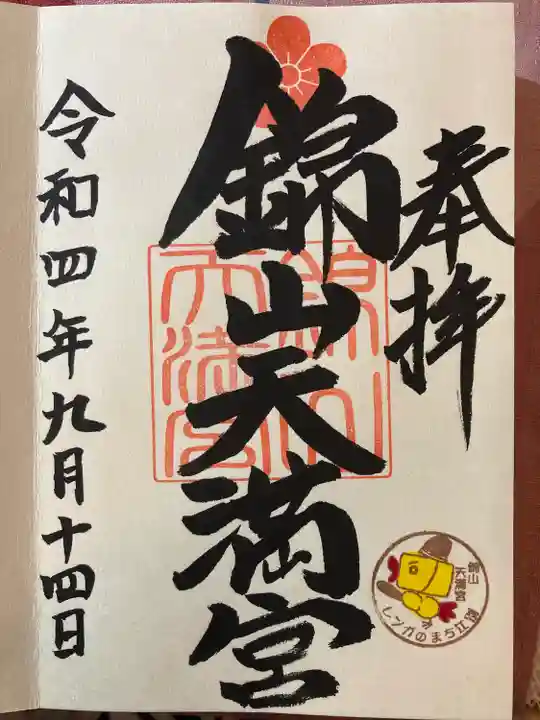 奉拝
錦山天満宮
錦山
天満宮
令和四年九月十四日
錦山
天満宮
レンガのまち江別